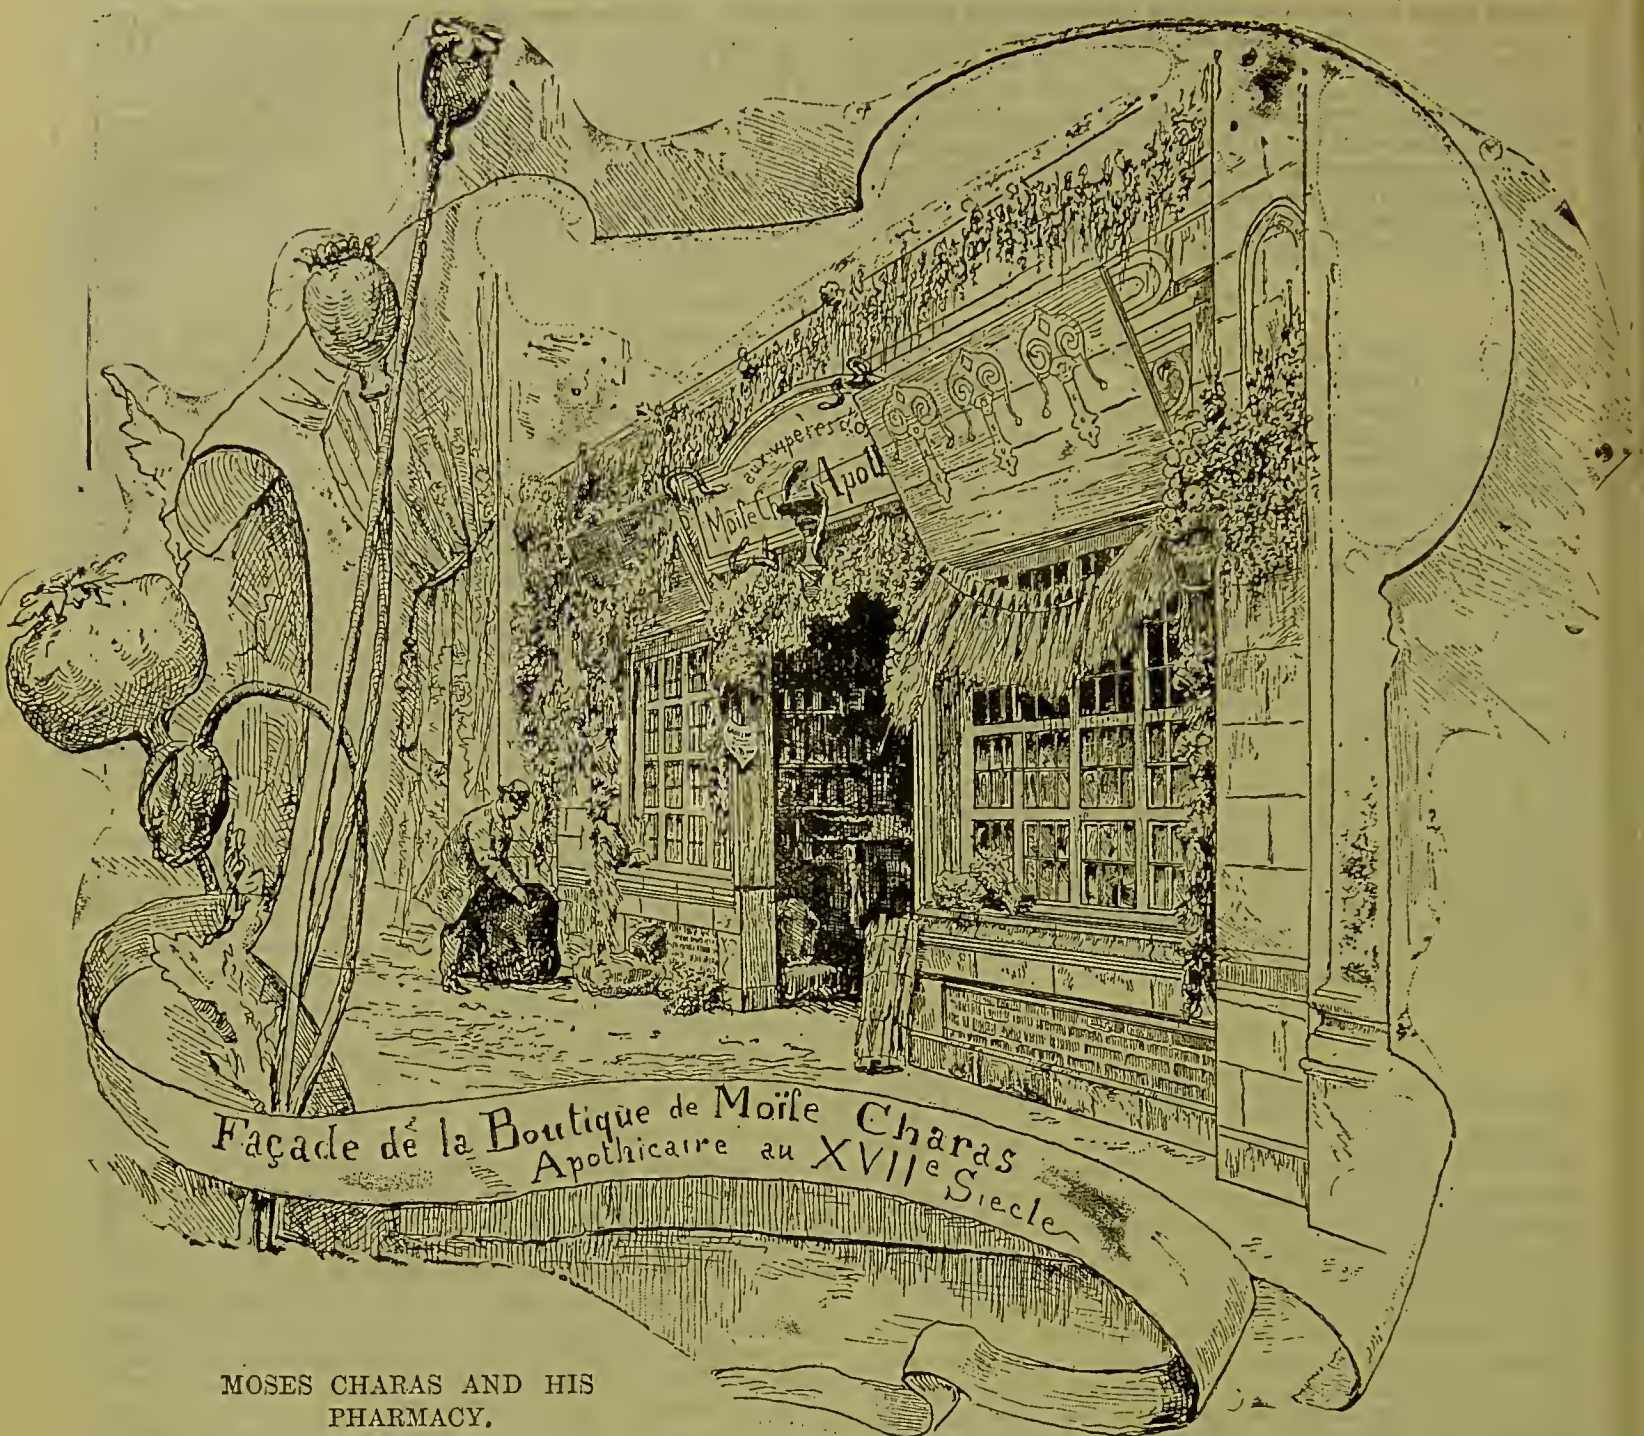 aux vipères
Moïſe
Façade de la Boutique de Moïſe Charas
Apothicaire au XVIIe Siecle
MOSES CHARAS AND HIS
PHARMACY.